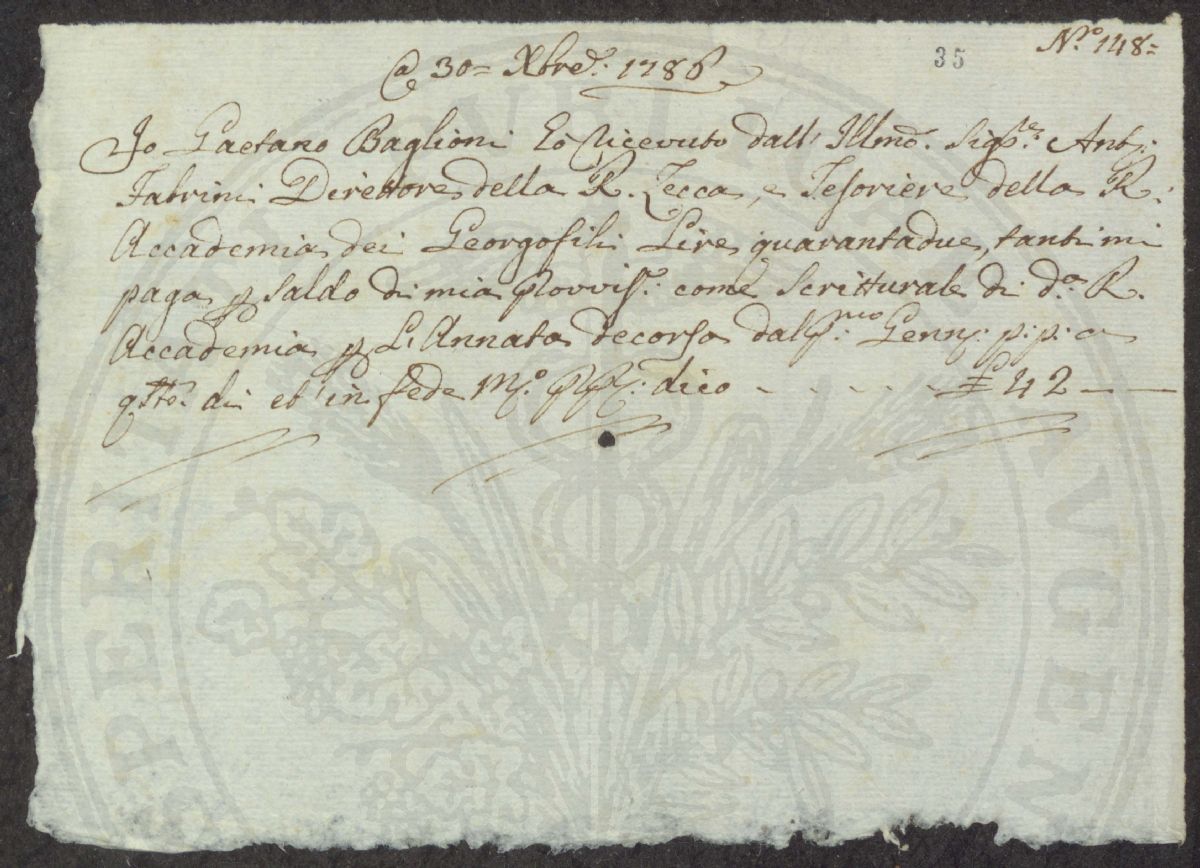 35
N.ro 148=
@ 30= Xbre: 1786
Jo Gaetano Baglioni ho Ricevuto dall' Illmo. Sigre. Anto:
Fabrini Direttore della R. Zecca, e Tesoriere della R.
Accademia dei Georgofili Lire quarantadue, tanti mi
paga p saldo di mia Provvis: come Scritturale di da. R.
Accademia p L'Annata decorsa dal pmo: Genno: p: p: a
qsto. di et in fede Mo. ppa: dico - - - - - £ 42 - -
PERITATI PVBLICAE AVGEN